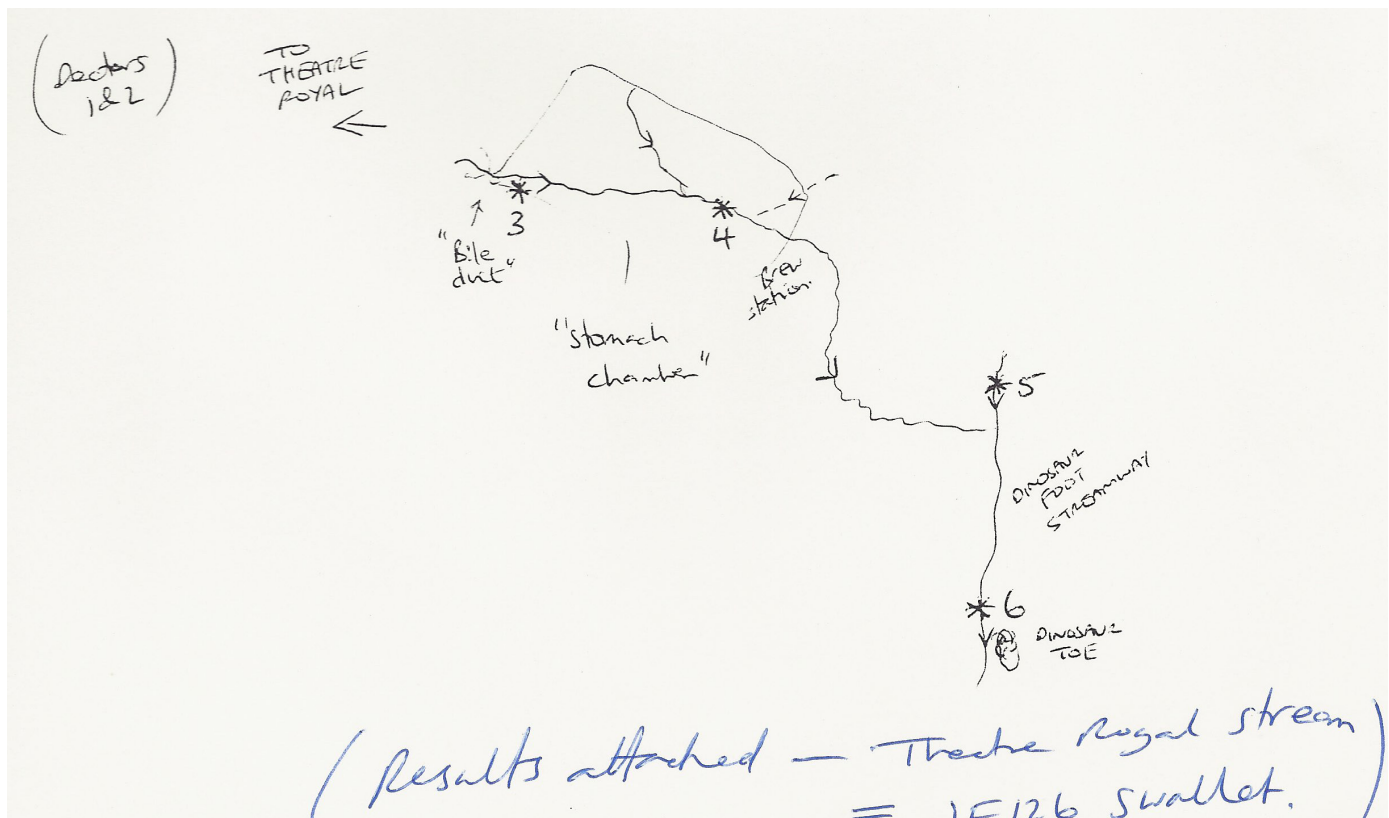 (Detectors
1&2)
TO
THEATRE
ROYAL
3
"Bile
duct"
4
Brew
station.
"Stomach
chamber"
5
DINOSAUR
FOOT
STREAMWAY
6
DINOSAUR
TOE
(Results attached — Theatre Royal stream
= JF126 swallet.)